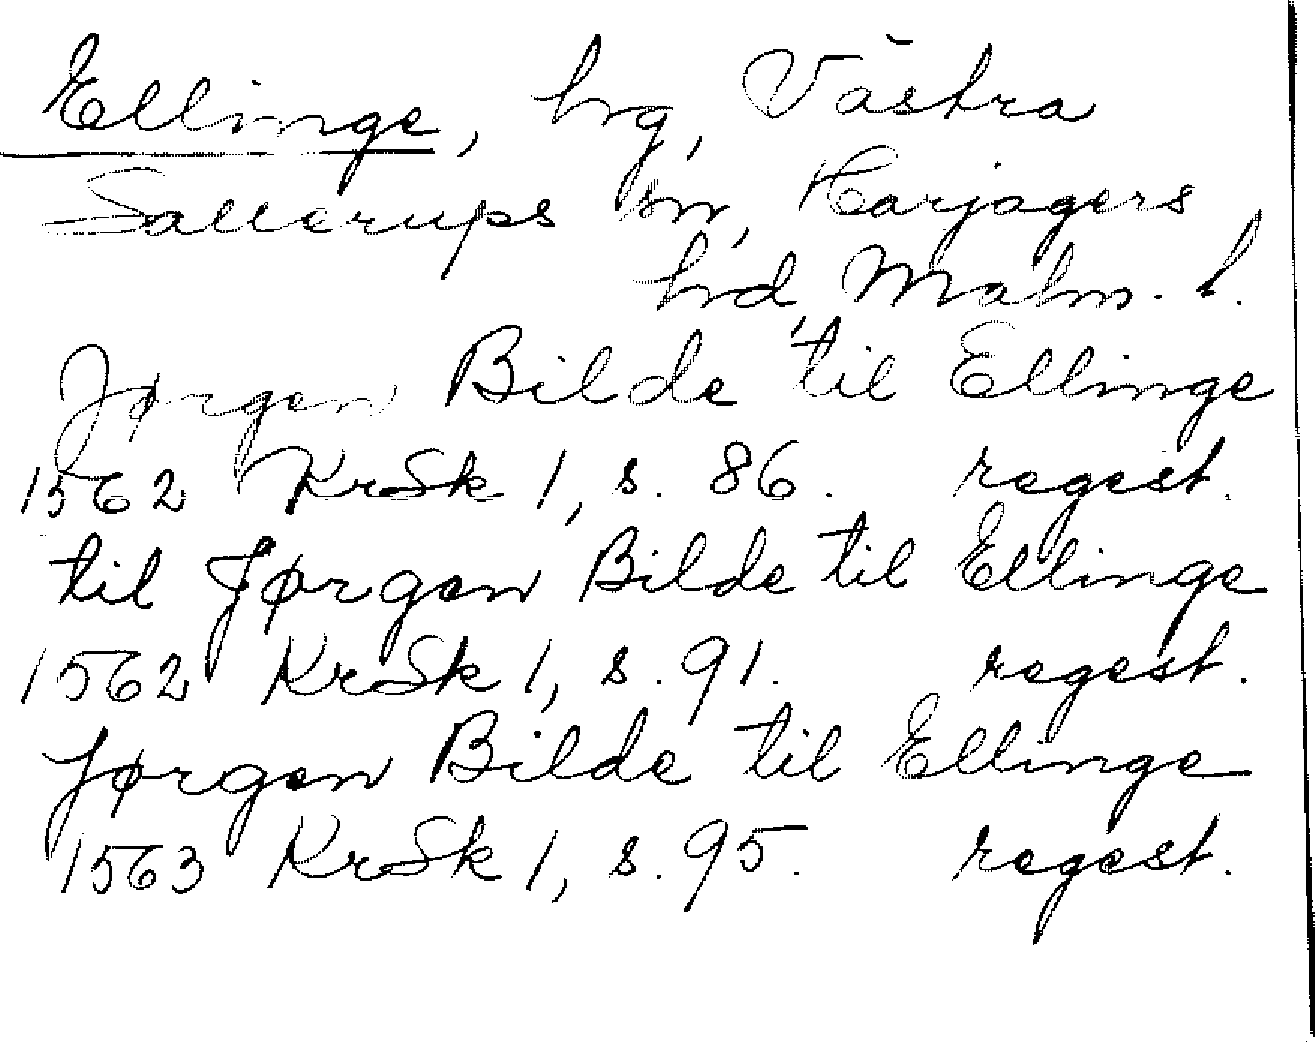 Ellinge, hrg, Västra
Sallerups sn, Harjagers
hrd, Malm. l.
Jørgen Bilde til Ellinge
1562 KrSk 1, s. 86. regest.
til Jørgen Bilde til Ellinge
1562 KrSk 1, s. 91. regest.
Jørgen Bilde til Ellinge
1563 KrSk 1, s. 95. regest.